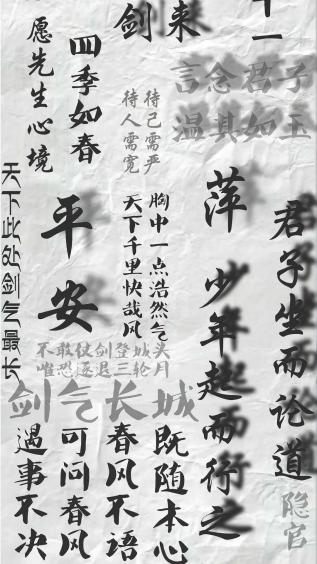 剑来
十一
愿先生心境
四季如春
待人需宽
待己需严
言念君子
温其如玉
天下此处剑气最长
平安
天下千里快哉风
胸中一点浩然气
萍
少年起而行之
君子坐而论道
隐官
不敢仗剑登城头
唯恐逼退三轮月
剑气长城
遇事不决
可问春风
春风不语
既随本心